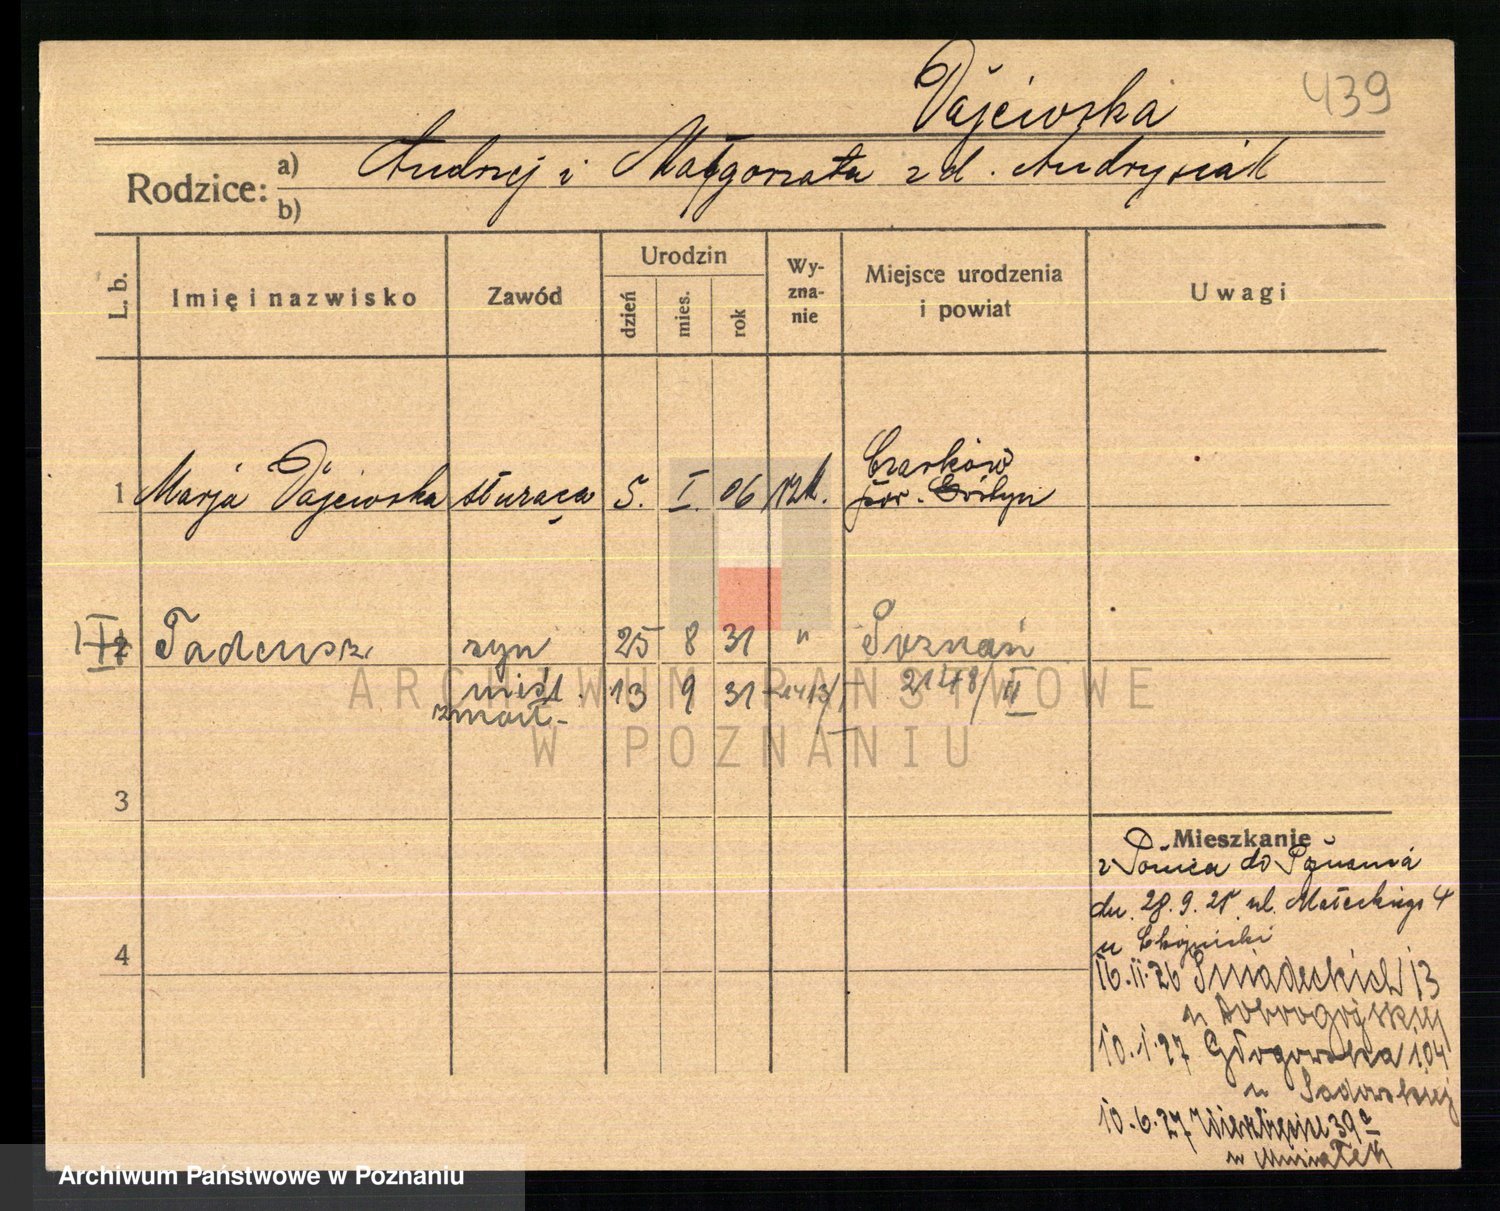 Pajewska 439
Rodzice: a) Andrzej i Małgorzata zd. Andrysiak
b)
L. b. Imię i nazwisko Zawód Urodzin dzień mies. rok Wy-zna-nie Miejsce urodzenia i powiat Uwagi
1 Marja Pajewska służąca 5. I. 06 rzk. Czarków
pow.
2 Tadeusz syn 25 8 31 " Poznań
nieśl. 13 9 31 1413/I 2148/II
zmarł.
3
4
Mieszkanie
z do Poznania
dn. 28.9.25 ul. Małeckiego 4
u
16.11.26 Śniadeckich 13
u Dobrogojskiej
10.1.27 Głogowska 104
u Sadowskiej
10.6.27 Wierzbięcice 39a
u
ARCHIWUM PAŃSTWOWE
W POZNANIU
Archiwum Państwowe w Poznaniu